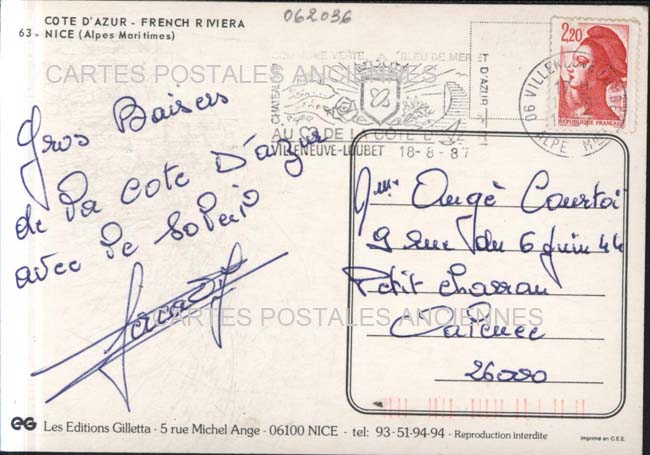 COTE D'AZUR - FRENCH RIVIERA
63 - NICE (Alpes Maritimes)
062036
CARTES POSTALES ANCIENNES
Gros Baisers
de la cote D'azur
avec le Soleil
2,20
REPUBLIQUE FRANÇAISE
06 VILLENEUVE
ALPES MMES
BLEU DE MER ET
D'AZUR
CHATEAU
AU CŒUR DE LA COTE D'AZUR
VILLENEUVE-LOUBET 18-8-87
Mme Angè Courtoi
9 rue du 6 Juin 44
Petit charran
Valence
26000
CARTES POSTALES ANCIENNES
EG Les Editions Gilletta - 5 rue Michel Ange - 06100 NICE - tel: 93-51-94-94 - Reproduction interdite
Imprimé en C.E.E.